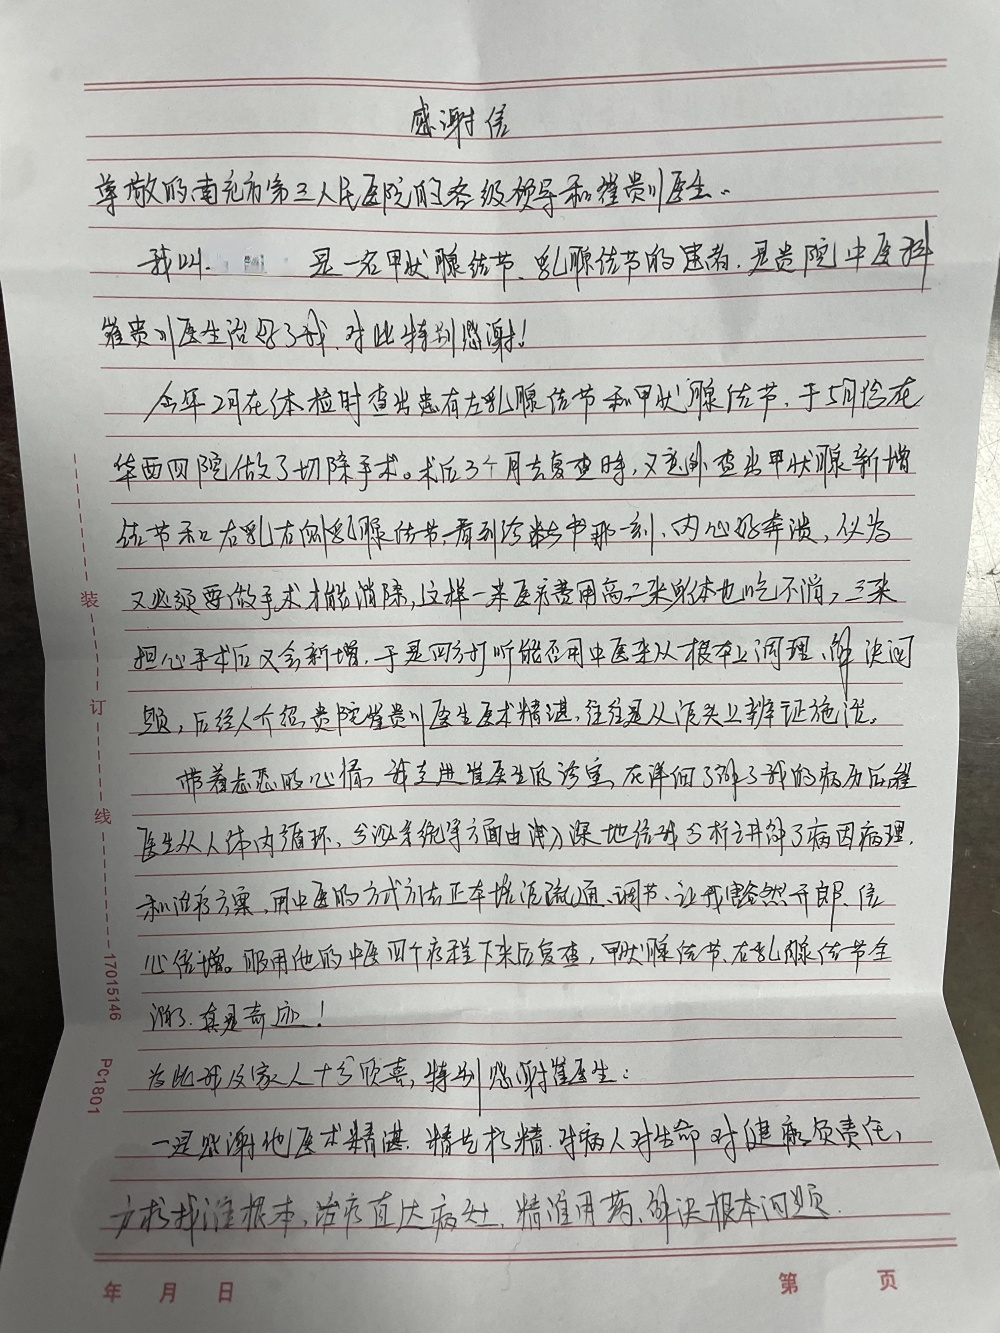 感谢信
尊敬的南充市第三人民医院的各级领导和崔贵川医生：
我叫 是一名甲状腺结节、乳腺结节的患者，是贵院中医科
崔贵川医生治好了我，对此特别感谢！
今年2月在体检时查出患有左乳腺结节和甲状腺结节，于5月份在
华西四院做了切除手术。术后3个月去复查时，又意外查出甲状腺新增
结节和右乳右侧乳腺结节，看到诊断书那一刻，内心好奔溃，以为
又必须要做手术才能消除，这样一来医疗费用高二来身体也吃不消，三来
担心手术后又会新增，于是四方打听能否用中医来从根本上调理、解决问
题，后经人介绍贵院崔贵川医生医术精湛，往往是从源头上辨证施治。
带着忐忑的心情，我走进崔医生的诊室，在详细了解了我的病历后崔
医生从人体内循环、分泌系统等方面由浅入深地给我分析讲解了病因病理，
和治疗方案，用中医的方式方法正本清源疏通、调节，让我豁然开朗、信
心倍增。服用他的中医四个疗程下来后复查，甲状腺结节、右乳腺结节全
消了，真是奇迹！
为此我及家人十分欣喜，特别感谢崔医生：
一是感谢他医术精湛，精益求精，对病人对生命对健康负责任，
力求找准根本，治疗直达病灶，精准用药，解决根本问题.
装
订
线
17015146
PC1801
年 月 日
第 页